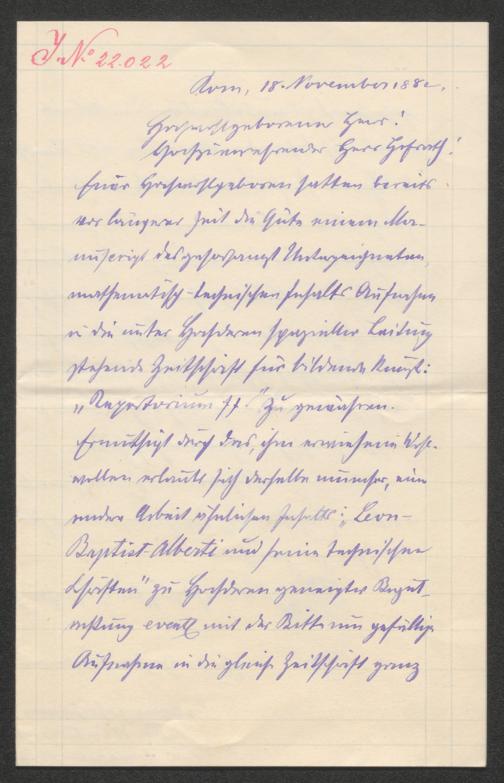 J. No 22.022
Rom, 18. November 188
Hochwohlgeborener Herr!
Hochzuverehrender Herr Hofrath!
Euer Hochwohlgeboren hatten bereits
vor längerer Zeit die Güte einem Ma-
nuscript des gehorsamst Unterzeichneten
mathematisch-technischen Inhalts Aufnahme
in die unter Hochderen spezieller Leitung
stehende Zeitschrift für bildende Kunst:
„Repertorium ff." zu gewähren.
Ermuthigt durch das, ihm erwiesene Wohl-
wollen erlaubt sich derselbe nunmehr, eine
andere Arbeit ähnlichen Inhalts: „Leon-
Baptist-Alberti und seine technischen
Schriften" zu Hochderen geneigter Begut-
achtung event. mit der Bitte um gefällige
Aufnahme in die gleiche Zeitschrift ganz